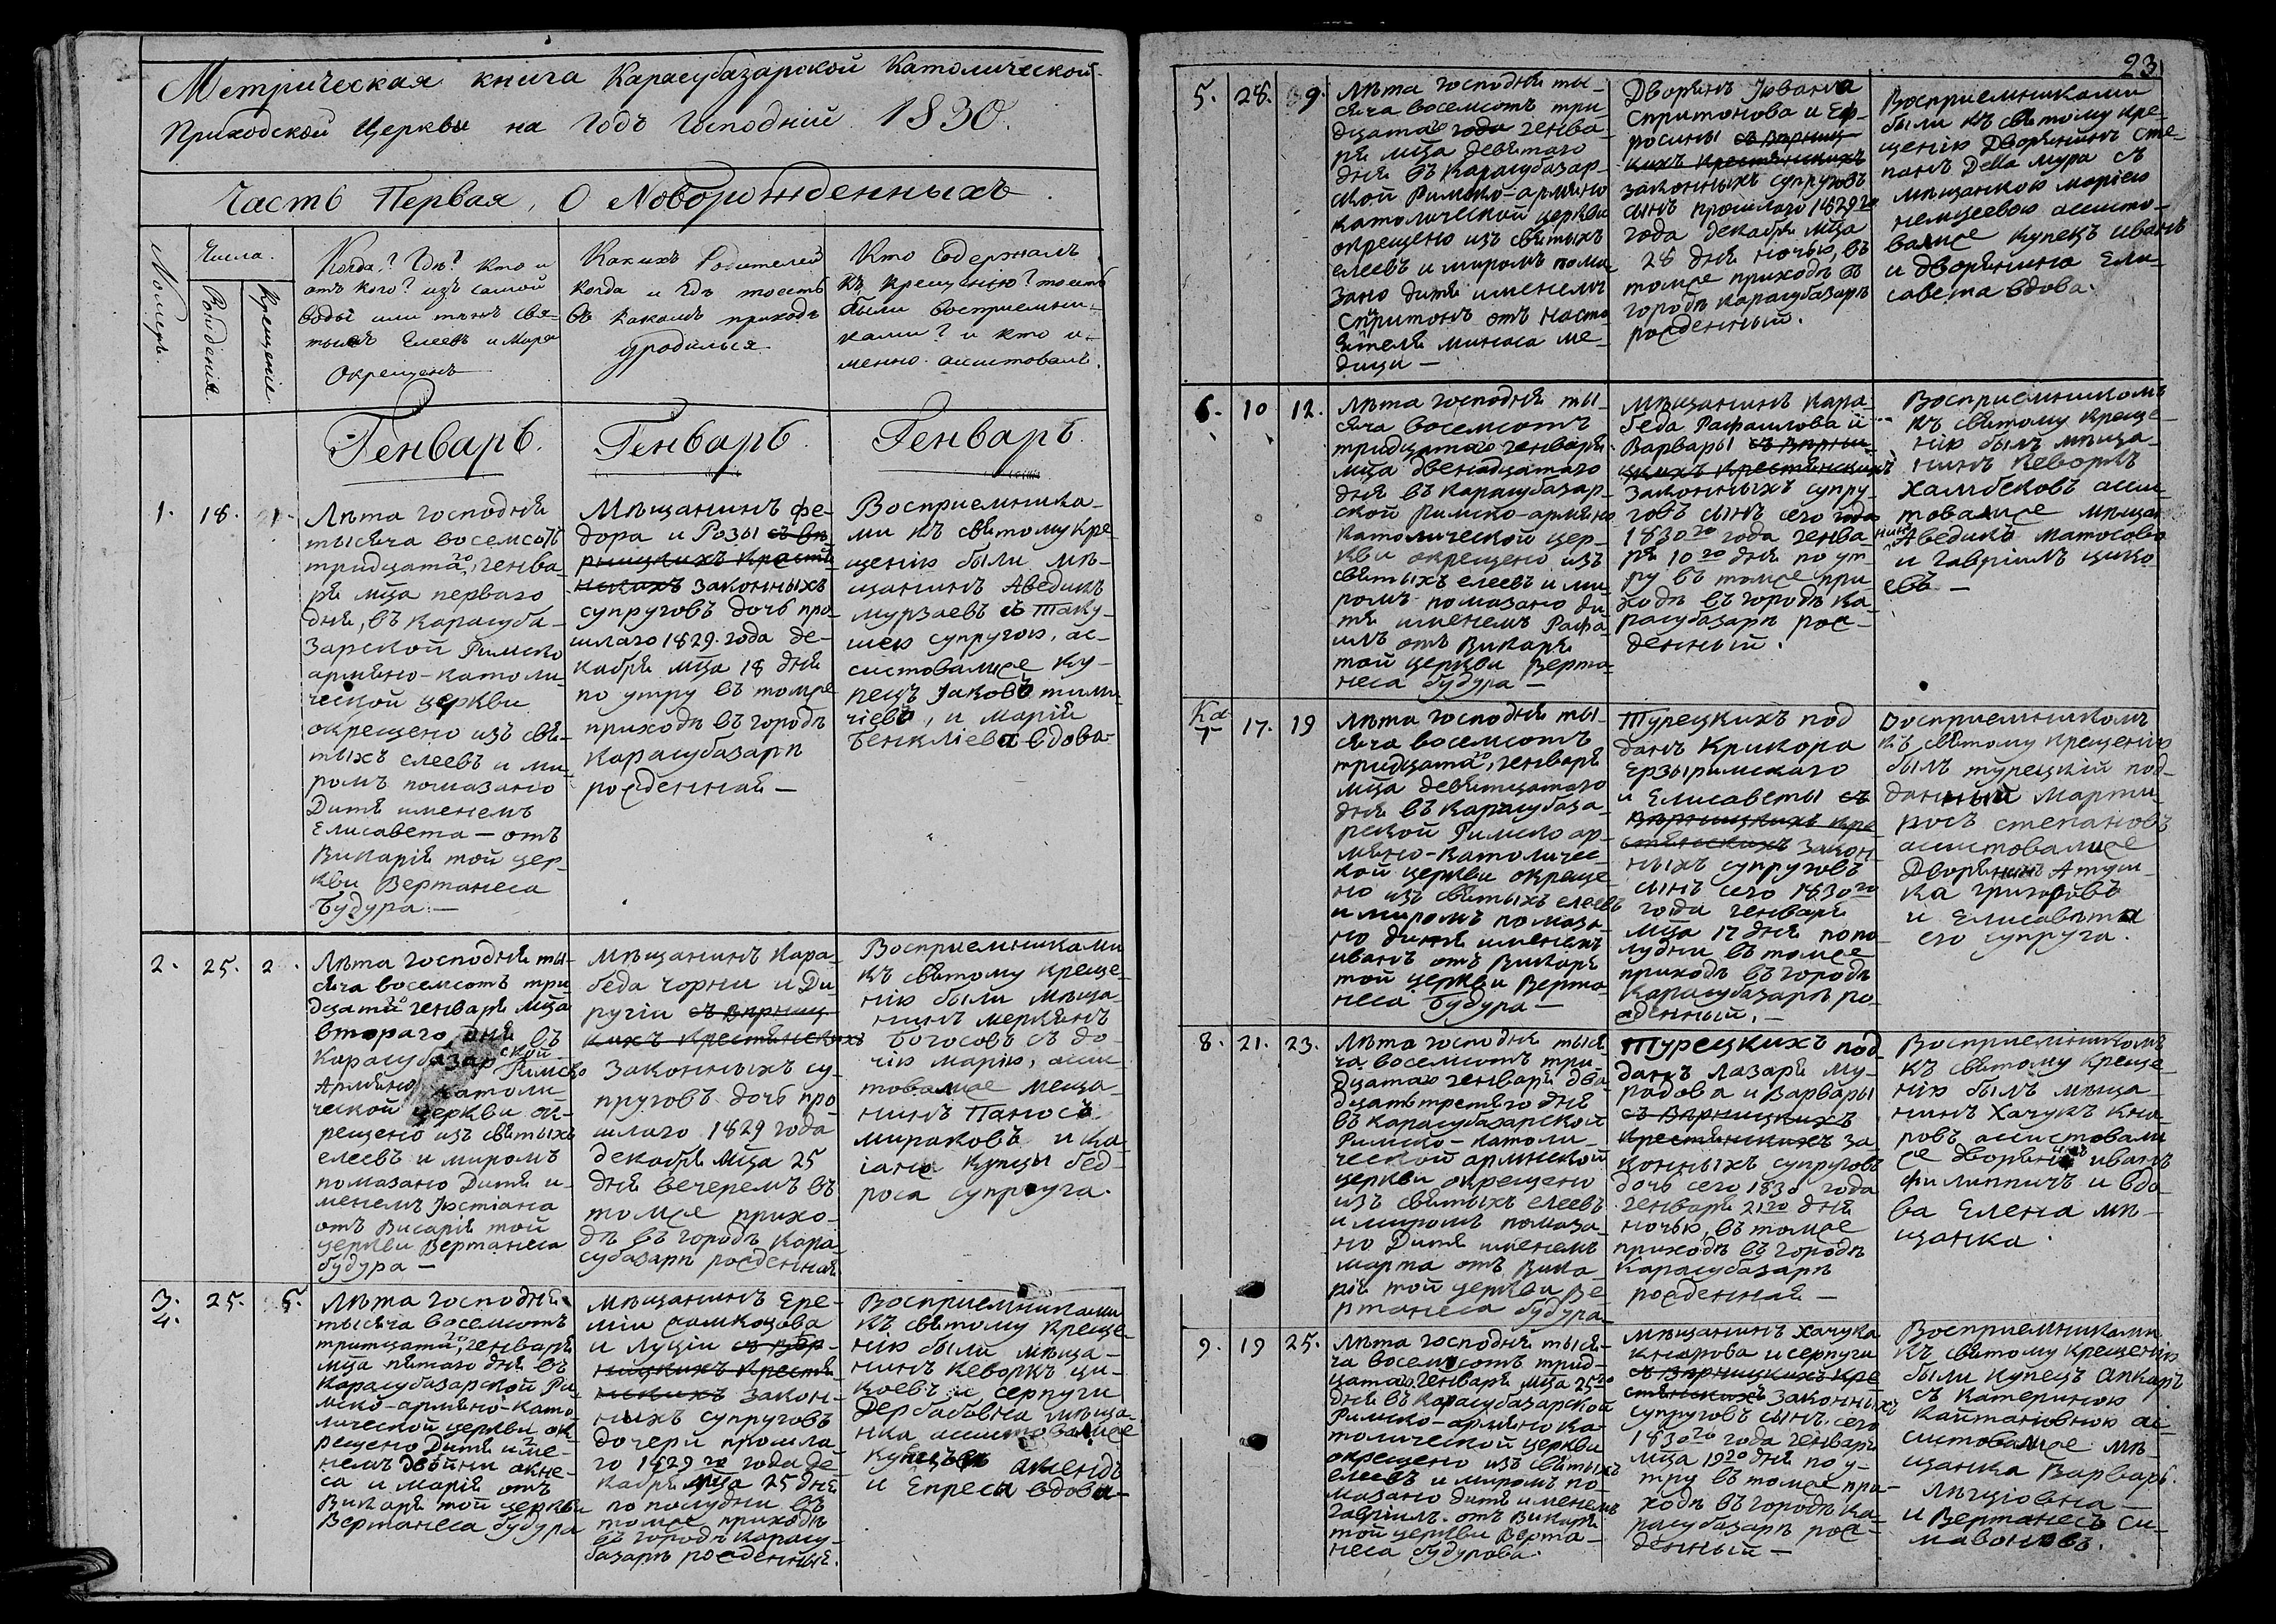 Метрическая книга Карасубазарской Католической
Приходской Церквы на Годъ Господнiй 1830.
Часть Первая, О Новорожденныхъ.
Номеръ.
Числа.
Рождения.
Крещенiе.
Когда? Гдѣ? Кто и
отъ кого? изъ самой
воды или
Елеевъ и Мира
Окрещенъ
Какихъ Родителей
когда и Гдѣ тоесть
въ какомъ приходѣ
уродился
Кто Содержалъ
къ крещенiю? тоесть
были восприемни-
ками? и кто и-
менно ассистовалъ.
Генварь.
Генварь.
Генварь.
1. 18. 1.
Лѣта господня
тысяча восемсотъ
тридцатаго, генва-
ря мца перваго
дня, въ Карасуба-
зарской Римско
армяно-католи-
ческой церкви
окрещено изъ свя-
тыхъ елеевъ и ми-
ромъ помазано
Дитя именемъ
Елисавета — отъ
Викарiя той цер-
кви Вертанеса
Будура. —
Мѣщанинъ Фе-
дора и Розы съ вѣ
рницкихъ Крестя
нскихъ законныхъ
супруговъ дочь про-
шлаго 1829. года де-
кабря мца 18 дня
по утру въ томже
приходѣ въ городѣ
Карасубазарѣ
рожденная —
Восприемника-
ми къ святому кре
щенiю были мѣ-
щанинъ Аведикъ
мурзаевъ съ Таку-
шею супругою, ас-
систовалисе ку-
пецъ Iаковъ
и Марiя
Бенклiева вдова
2. 25. 2.
Лѣта господня ты-
сяча восемсотъ три
дцатаго генваря мца
втораго дня въ
Карасубазарской
Римско
Армяно Католи
ческой церкви ок-
рещено изъ святыхъ
елеевъ и миромъ
помазано Дитя и-
менемъ Iюстiана
отъ Викарiя той
церкви Вертанеса
будура —
мѣщанинъ Кара-
беда Чорни и Ди-
ругiи съ вѣрниц-
кихъ Крестянскихъ
Законныхъ су-
пруговъ дочь про
шлаго 1829 года
декабря мца 25
дня вечеремъ въ
томже прихо-
дѣ въ городѣ Кара-
субазарѣ рожденная
Восприемниками
къ святому креще-
нiю были мѣща-
нинъ меркянъ
Богосовъ съ до-
чiю марiю, асси
товалисе меща-
нинъ Паносъ
мираковъ и
купцы бед-
роса супруга.
3.
4. 25. 5.
Лѣта господня
тысяча восемсотъ
тритцатаго, генваря
мца пятаго дня въ
Карасубазарской Ри
мско-армяно-като-
лической церкви ок-
рещено Дитя име-
немъ двойни акне-
са и марiя отъ
Викаря той церкви
Вертанеса будура
мѣщанинъ Ере-
мiи самкоцова
и Луцiи съ вѣр-
ницкихъ Крестя
нскихъ закон-
ныхъ супруговъ
дочери прошла-
го 1829го года де-
кабря мца 25 дня
по полудни въ
томже приходѣ
въ городѣ Карасу-
базарѣ рожденныя.
Восприемниками
къ святому креще-
нiю были мѣща-
нинъ Кеворкъ ци-
коевъ и серпуги
Дербабовна мѣща-
нка ассистовалисе
и Епреса вдова
23
5. 28. 9.
Лѣта господня ты-
сяча восемсотъ три
дцатаго года генва-
ря мца девятаго
дня въ Карасубазар-
ской Римско-армяно
католической церкви
окрещено изъ святыхъ
елеевъ и миромъ пома
зано дитя именемъ
Спиритонъ отъ насто
ятеля минаса ме-
дици —
Дворянъ Iована
Спритонова и Еф-
росины съ вѣрниц-
кихъ Крестянскихъ
законныхъ супруговъ
сынъ прошлаго 1829го
года декабря мца
28 дня ночью, въ
томже приходѣ въ
городѣ Карасубазарѣ
рожденный.
Восприемниками
были къ святому кре-
щенiю Дворянинъ Сте-
панъ Della мура съ
мѣщанкою марiею
немцеевою ассисто-
валисе купецъ иванъ
и дворянина Ели-
савета вдова.
6. 10 12.
Лѣта господня ты-
сяча восемсотъ
тридцатаго генваря
мца двенадцатаго
дня въ Карасубазар-
ской Римско-армяно
католической цер-
кви окрещено изъ
святыхъ елеевъ и ми-
ромъ помазано ди-
тя именемъ Рафа-
илъ отъ Викаря
той церкви Верта-
неса будура —
мѣщанинъ Кара-
беда Рафаилова и
Варвары съ вѣрни-
цкихъ Крестянскихъ
законныхъ супру-
говъ сынъ сего года
1830го года генва-
ря 10го дня по ут-
ру въ томже при
ходѣ въ городѣ Ка-
расубазарѣ рож-
денный.
Восприемникомъ
къ святому креще-
нiю былъ мѣща-
нинъ Кеворкъ
Хамбековъ асси-
товалисе мѣщан
нинъ Аведикъ матосова
и гаврiилъ цико-
евъ —
Ка
7 17. 19
Лѣта господня ты-
сяча восемсотъ
тридцатаго, генваря
мца девятнацатаго
дня въ Карасубаза-
рской Римско ар-
мяно-католичес-
кой церкви окреще
но изъ святыхъ елеевъ
и миромъ помаза-
но дитя именемъ
иванъ отъ Викаря
той церкви Верта-
неса будура —
Турецкихъ под
данъ Крикора
Ерзыримскаго
и Елисаветы съ
вѣрницкихъ кре
стянскихъ закон-
ныхъ супруговъ
сынъ сего 1830го
года генваря
мца 17 дня попо-
лудни въ томже
приходѣ въ городѣ
Карасубазарѣ ро-
жденный. —
Восприемникомъ
къ святому крещенiю
былъ турецкiй под-
данный марти-
росъ степановъ
ассистовалисе
Дворянинъ Атуш-
ка григоровъ
и Елисавета
его супруга.
8. 21. 23.
Лѣта господня тыся
ча восемсотъ три-
дцатаго генваря два
дцать третяго дня
въ карасубазарской
Римско-католи-
ческой армянской
церкви окрещено
изъ святыхъ елеевъ
и миромъ помаза-
но Дитя именемъ
марта отъ вика-
рiя той церкви Ве-
ртанеса будура
Турецкихъ под
данъ Лазаря му-
радова и Варвары
съ вѣрницкихъ
Крестянскихъ за-
конныхъ супруговъ
дочь сего 1830 года
генваря 21го дня
ночью, въ томже
приходѣ въ городѣ
Карасубазарѣ
рожденная —
Восприемникомъ
къ святому креще-
нiю былъ мѣща-
нинъ Хачукъ Кна-
ровъ ассистовали
се дворянинъ иванъ
филиппичъ и вдо-
ва Елена мѣ-
щанка.
9. 19 25.
Лѣта господня тыся-
ча восемсотъ трид-
цатаго генваря мца 25го
дня въ Карасубазарской
Римско-армяно ка-
толической церкви
окрещено изъ святыхъ
елеевъ и миромъ по-
мазано дитя именемъ
гаврiилъ отъ Викаря
той церкви Верта-
неса будурова.
мѣщанинъ Хачука
кнарова и серпуги
съ вѣрницкихъ кре
стянскихъ законныхъ
супруговъ сынъ сего
1830го года генваря
мца 19го дня по у-
тру въ томже при-
ходѣ въ городѣ Ка-
расубазарѣ рож-
денный —
Восприемниками
къ святому крещенiю
были купецъ Апкаръ
съ катериною
Кайтановною ас-
систовалисе мѣ-
щанка Варвара
и Вертанесъ си-
мавоновъ.